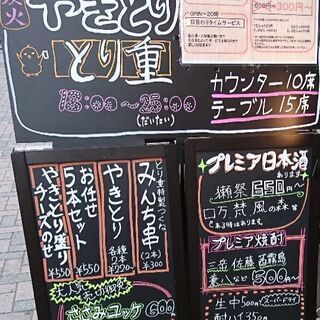 炭火
やきとり
とり重
18:00〜25:00
(だいたい)
300円〜
OPEN〜20時
日替わりタイムサービス
カウンター10席
テーブル15席
とり重特製つくね
みんち串
2本¥300
やきとり
各種2本¥220〜
お任せ
5本セット
¥550
やきとり盛り
チーズのせ
¥550
大人気
ささみユッケ600
プレミア日本酒
あります
獺祭650円〜
プレミアム焼酎
三岳 佐藤 茜霧島
兼八など500円〜
生中500円 スーパードライ
酎ハイ350円